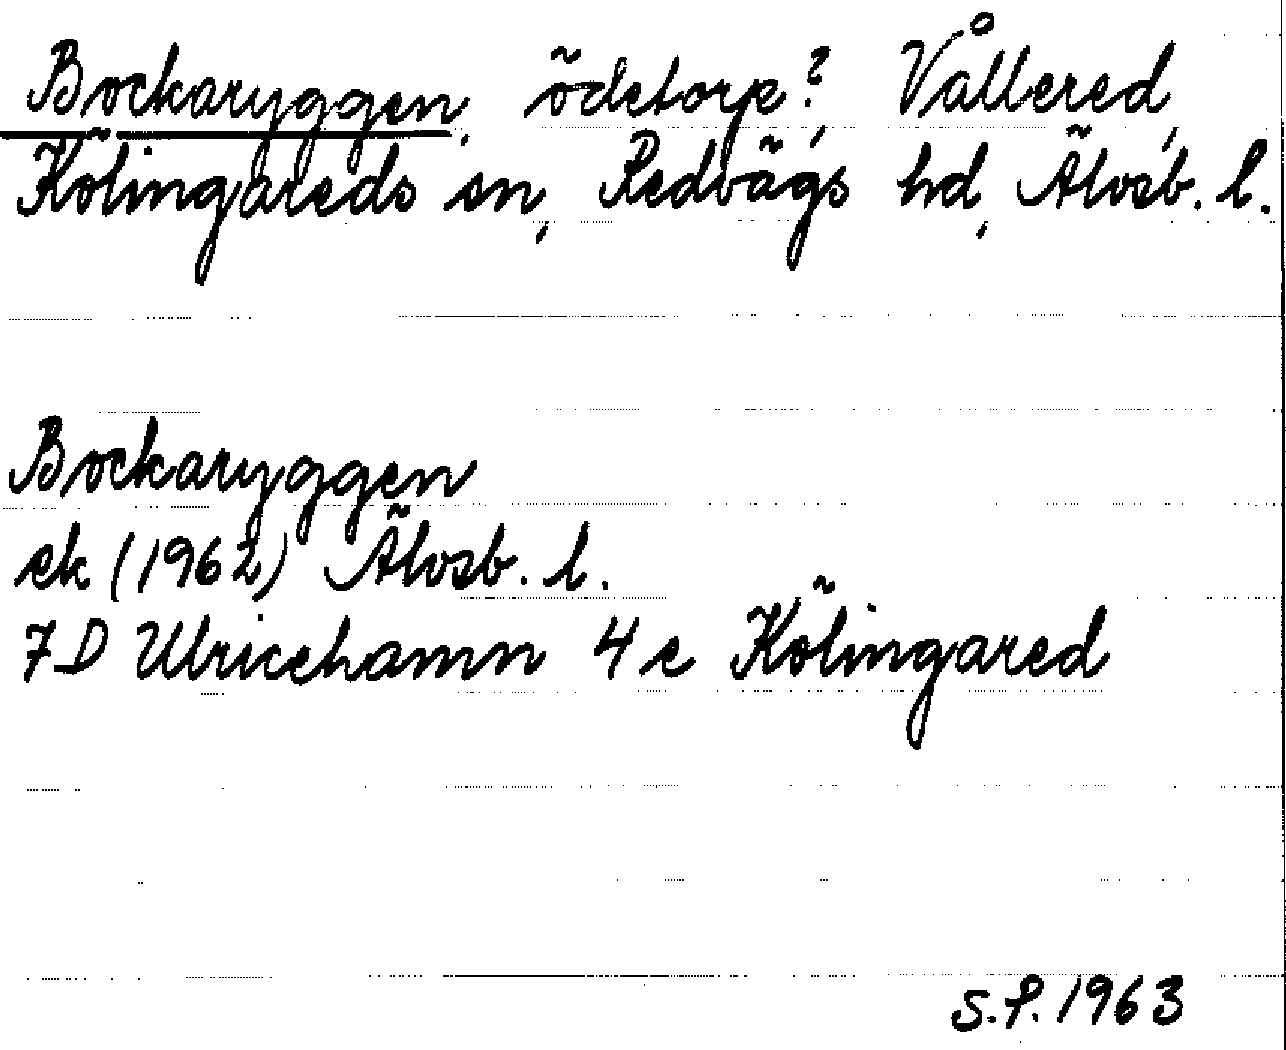 Bockaryggen, ödetorp?, Vållered,
Kölingareds sn, Redvägs hd, Älvsb. l.
Bockaryggen
ek (1962) Älvsb. l.
7D Ulricehamn 4 e Kölingared
S.P. 1963